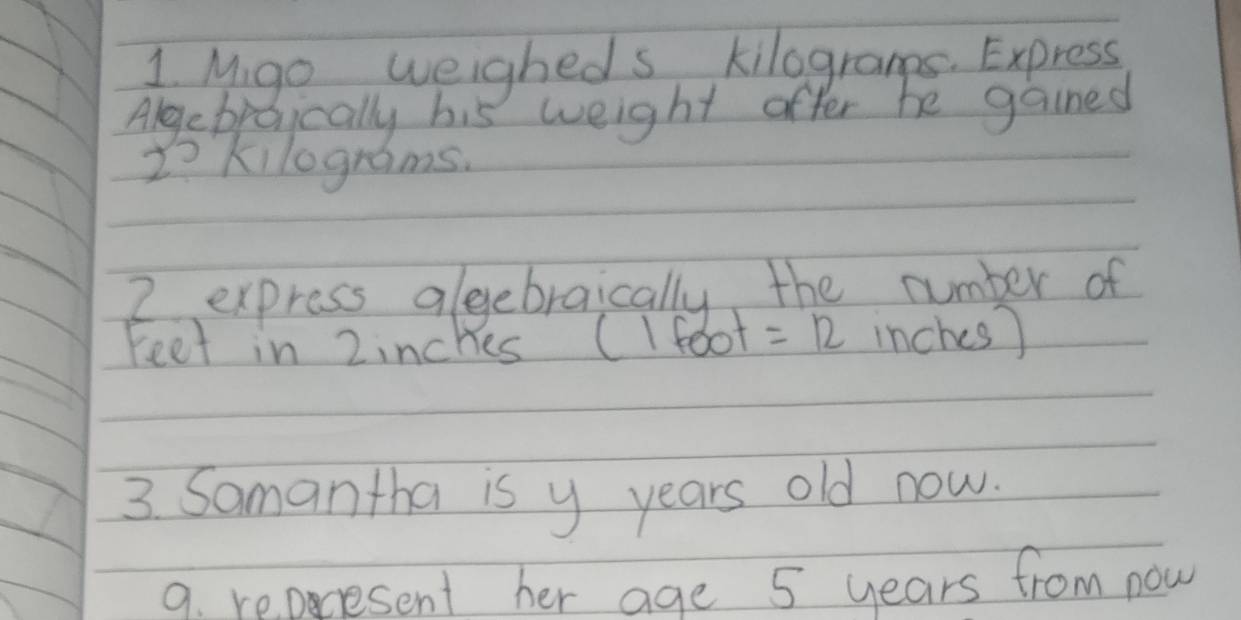 1. Migo weighed s kilograms. Express
Algebraically his weight after he gained
kilograms.
2 express algebraically the number of
Feet in 2 inches (1 foot = 12 inches)
3. Samantha is y years old now.
a. represent her age 5 years from now